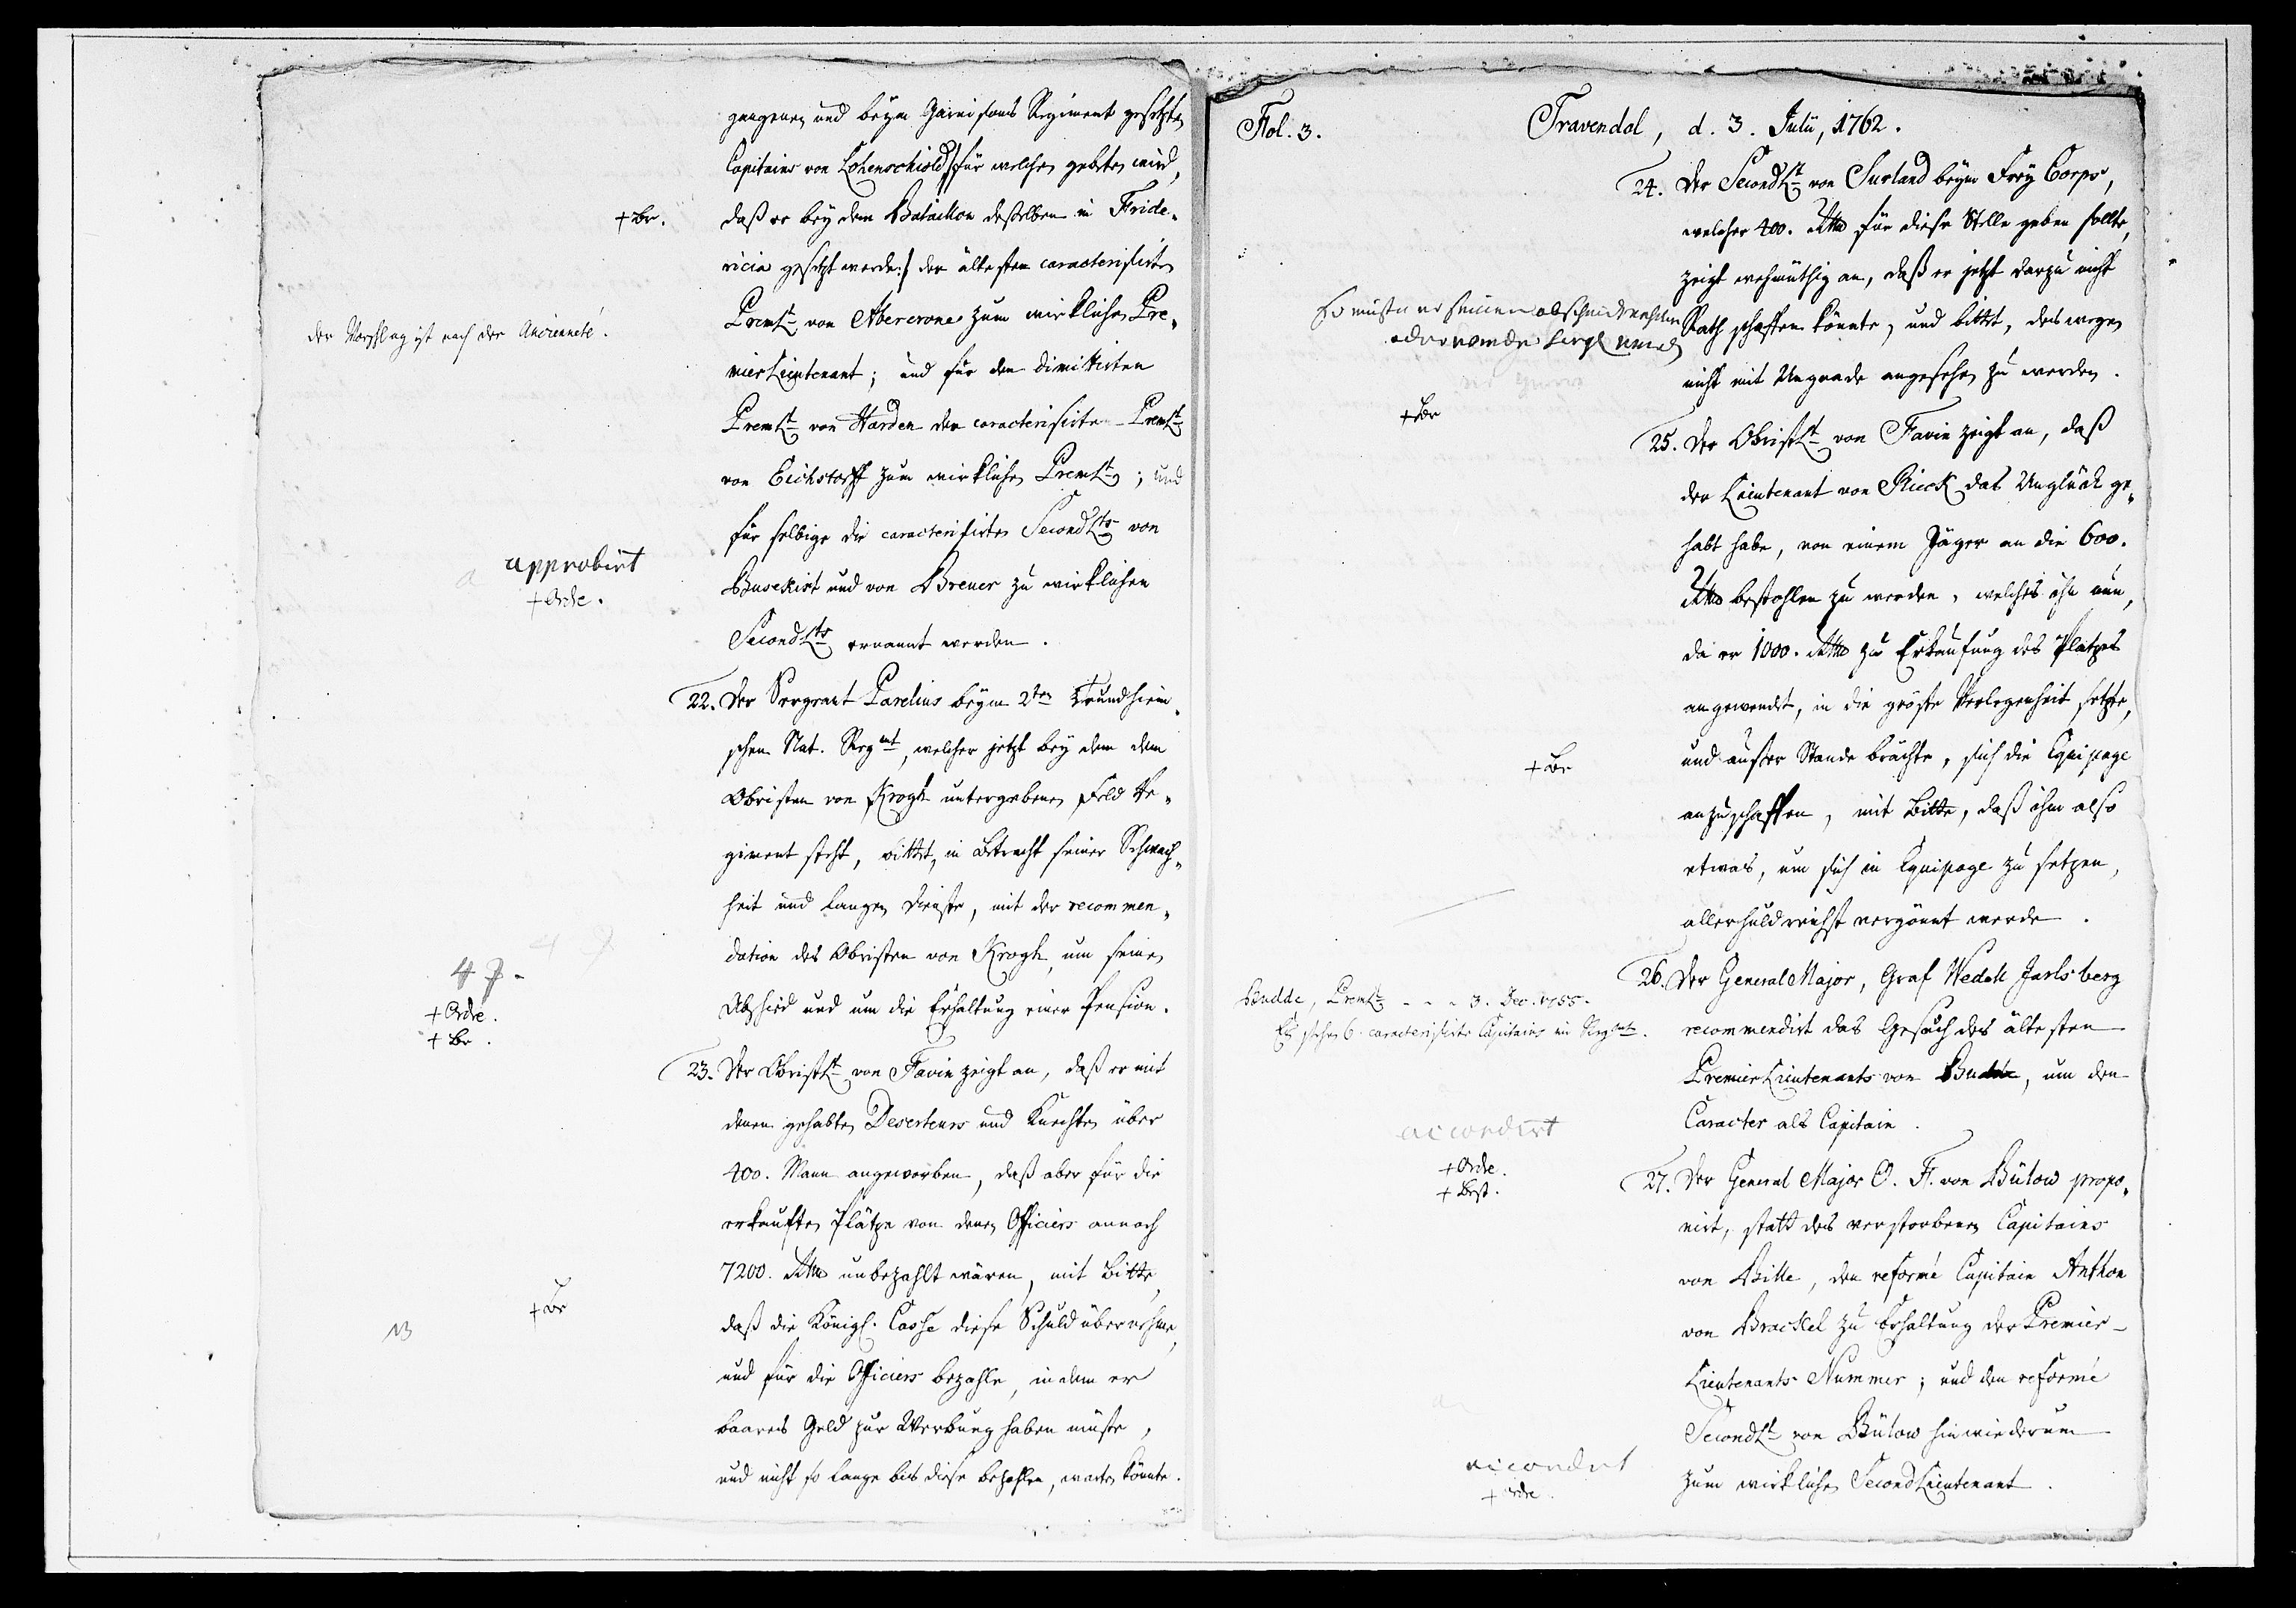 gangenen und beym Garnisons Regiment gesetzten
Capitains von Lohenschiold /:für welchen gebeten wird,
+ Br.
daß er bey dem Bataillon deßelben in Fride„
ricia gesetzt werde:/ der ältesten caracterisirte
Prem Lt von Abercrone zum wirklichen Pre„
der Vorschlag ist nach der Ancienneté.
mier Lieutenant; und für den dimittirten
Prem Lt von Harden der caracterisirte Prem Lt
von Eichstorff zum wirklichen Prem Lt; und
für selbige die caracterisirte Second Lts von
approbirt
+ Ordre.
Busekist und von Brener zu wirklichen
Second Lts ernannt werden.
22. Der Sergeant Parelius beym 2ten Trundhiem„
schen Nat. Regmt, welcher jetzt bey dem dem
Obristen von Krogh untergebenen Feld Re„
giment steht, bittet, in Betracht seiner Schwach„
heit und langen Dienste, mit der recommen„
dation des Obristen von Krogh, um seinen
Abschied und um die Erhaltung einer Pension.
+ Ordre.
+ Br.
23. Der Obrist Lt von Favin zeigt an, daß er mit
denen gehabten Deserteurs und Knechten über
400. Mann angeworben, daß aber für die
erkauften Plätze von denen Officiers annoch
7200. Rthlr unbezahlt wären, mit Bitte,
+ Br
NB
daß die Königl. Casse diese Schuld übernehme,
und für die Officiers bezahle, indem er
baares Geld zur Werbung haben müste,
und nicht so lange bis diese bezahlen, warten könnte.
Fol. 3.
Travendal, d. 3. Julii, 1762.
24. Der Second Lt von Surland beym Frey Corps,
welcher 400. Rthlr für diese Stelle geben sollte,
zeigt wehmüthig an, daß er jetzt darzu nicht
so müste er seinen abscheidt nehmen
Rath schaffen könnte, und bittet, deswegen
oder
nicht mit Ungnade angesehen zu werden.
+ Br
25. Der Obrist Lt von Favin zeigt an, daß
der Lieutenant von Rieck das Unglück ge„
habt habe, von einem Jäger an die 600.
Rthlr bestohlen zu werden, welches ihn nun,
da er 1000. Rthlr zu Erkaufung des Platzes
angewendet, in die gröste Verlegenheit setzte,
+ Br
und außer Stande brächte, sich die Equipage
anzuschaffen, mit Bitte, daß ihm also
etwas, um sich in Equipage zu setzen,
allerhuldreichst vergönnt werde.
26. Der General Major, Graf Wedell Jarlsberg
Budde, Prem Lt - - - 3. Dec. 1755.
Es stehen 6. caracterisirte Capitains im Regmt.
recommendirt das Gesuch des ältesten
Premier Lieutenants von Budde, um den
Caracter als Capitain.
accordirt
+ Ordre.
+ Best.
27. Der General Major C. F. von Bülow propo„
nirt, statt des verstorbenen Capitains
von Bille, den reformé Capitain Anthon
von Brackel zu Erhaltung der Premier-
Lieutenants Nummer; und den reformé
Second Lt von Bülow hinwiederum
accordirt
+ Ordre.
zum wirklichen Second Lieutenant.